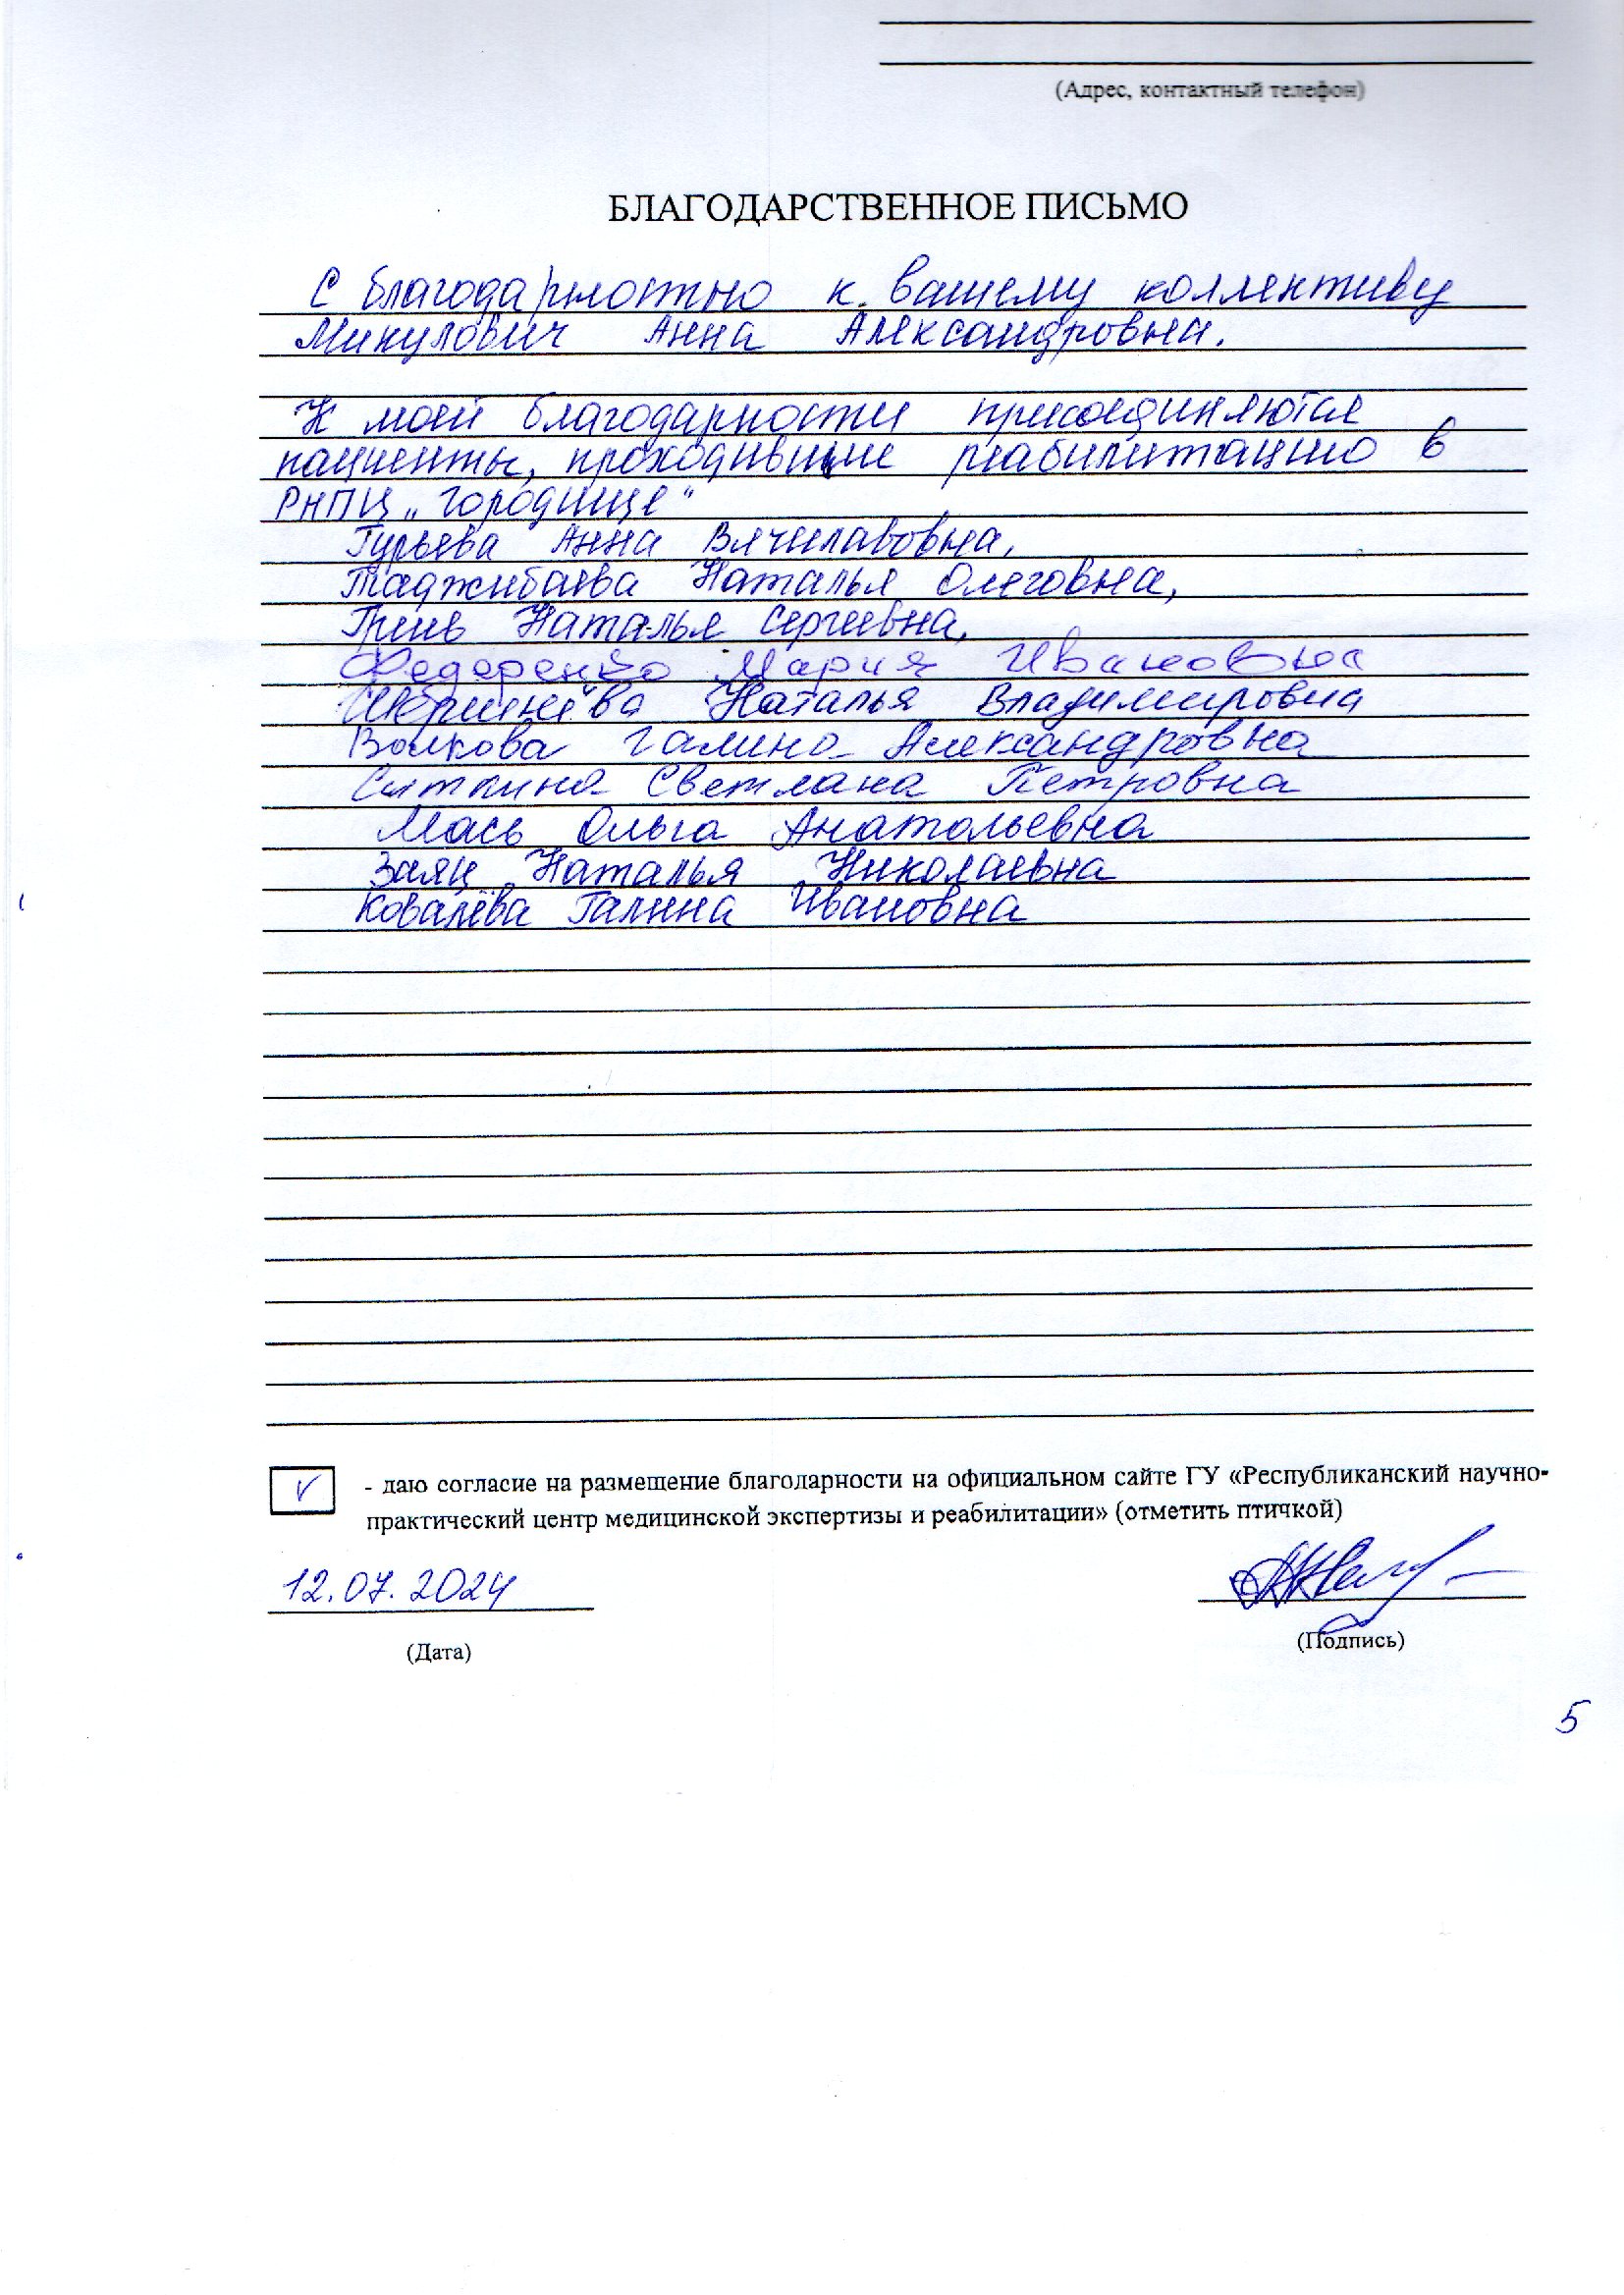 (Адрес, контактный телефон)
БЛАГОДАРСТВЕННОЕ ПИСЬМО
С благодарностью к вашему коллективу
Микулович Анна Александровна.
К моей благодарности присоединяются
пациенты, проходившие реабилитацию в
РНПЦ „Городище"
Гурьева Анна Вячилавовна,
Таджибаева Наталья Олеговна,
Гринь Наталья Сергеевна,
Федеренко Мария Ивановна
Наталья Владимировна
Волкова Галина Александровна
Ситкина Светлана Петровна
Мась Ольга Анатольевна
Заяц Наталья Николаевна
Ковалёва Галина Ивановна
- даю согласие на размещение благодарности на официальном сайте ГУ «Республиканский научно-
практический центр медицинской экспертизы и реабилитации» (отметить птичкой)
12.07.2024
(Дата)
(Подпись)
5